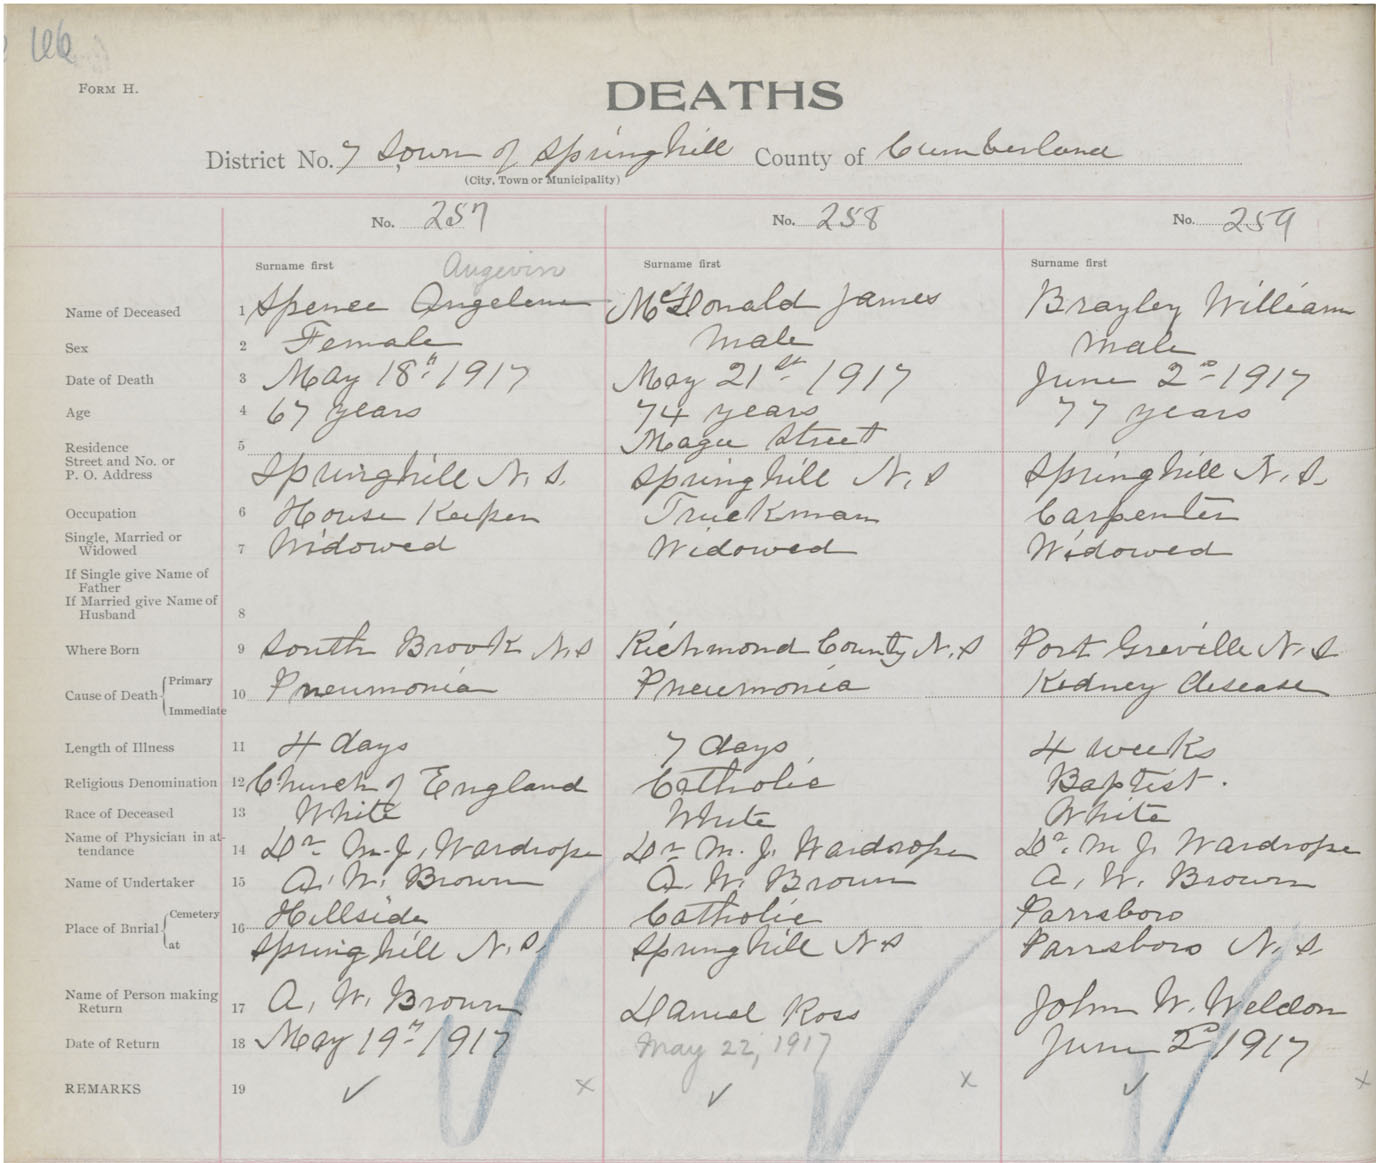 66
FORM H.
DEATHS
District No. 7 Town of Springhill County of Cumberland
(City, Town or Municipality)
No. 257 No. 258 No. 259
Surname first Angevin Surname first Surname first
Name of Deceased 1 Spence Angeline McDonald James Brayley William
Sex 2 Female Male Male
Date of Death 3 May 18th 1917 May 21st 1917 June 2nd 1917
Age 4 67 years 74 years 77 years
Residence 5 Magee Street
Street and No. or
P. O. Address Springhill N.S. Springhill N.S Springhill N.S.
Occupation 6 House Keeper Truckman Carpenter
Single, Married or
Widowed 7 Widowed Widowed Widowed
If Single give Name of
Father
If Married give Name of
Husband 8
Where Born 9 South Brook N.S Richmond County N.S Port Greville N.S
Cause of Death Primary 10 Pneumonia Pneumonia Kidney disease
Immediate
Length of Illness 11 4 days 7 days 4 weeks
Religious Denomination 12 Church of England Catholic Baptist.
Race of Deceased 13 White White White
Name of Physician in at-
tendance 14 Dr. M.J. Wardrope Dr M.J. Wardrope Dr. M J. Wardrope
Name of Undertaker 15 A.W. Brown A.W. Brown A.W. Brown
Place of Burial Cemetery 16 Hillside Catholic Parrsboro
at Springhill N.S. Springhill N.S Parrsboro N.S.
Name of Person making
Return 17 A.W. Brown Daniel Ross John W. Weldon
Date of Return 18 May 19th 1917 May 22, 1917 June 2nd 1917
REMARKS 19 ✓ x ✓ x ✓ x